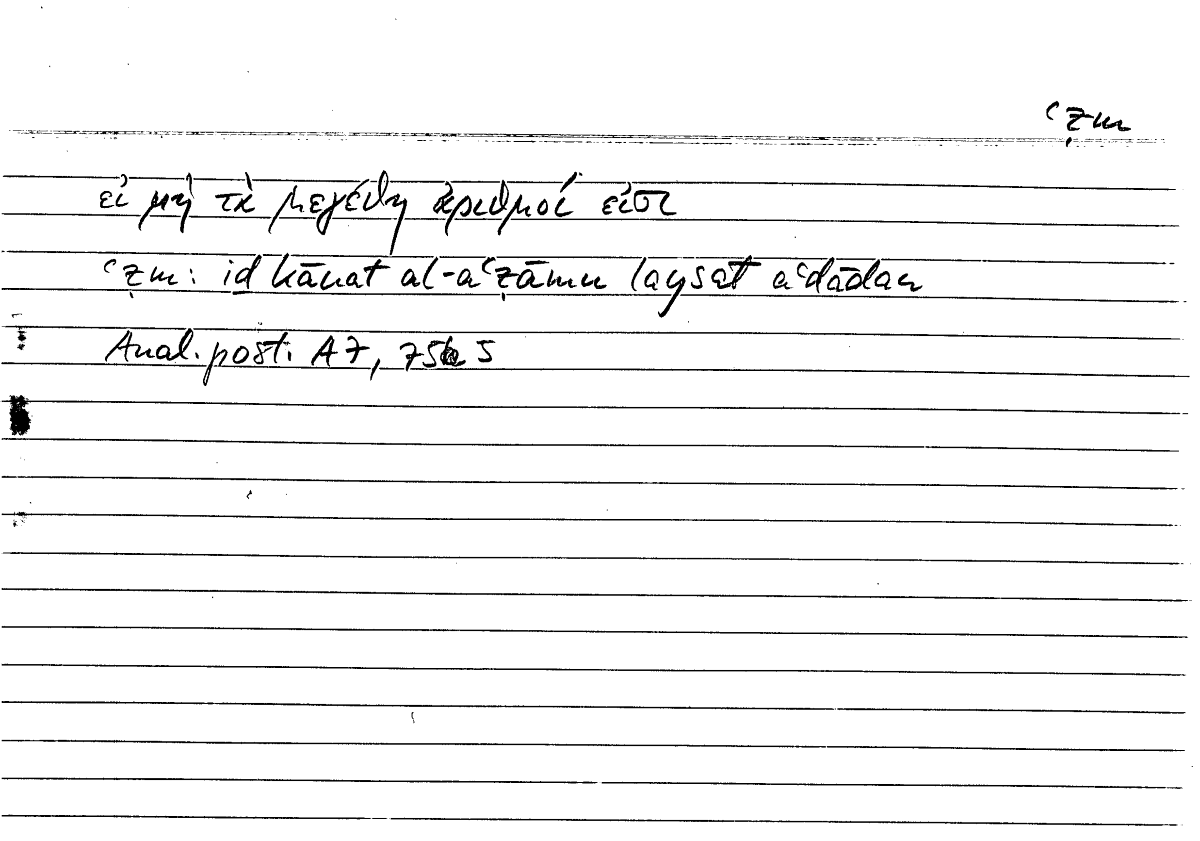 ʿẓm
εἰ μὴ τὰ μεγέθη ἀριθμοί εἰσι
ʿẓm: iḏ kānat al-aʿẓāmu laysat aʿdādan
Anal. post. A 7, 75b 5